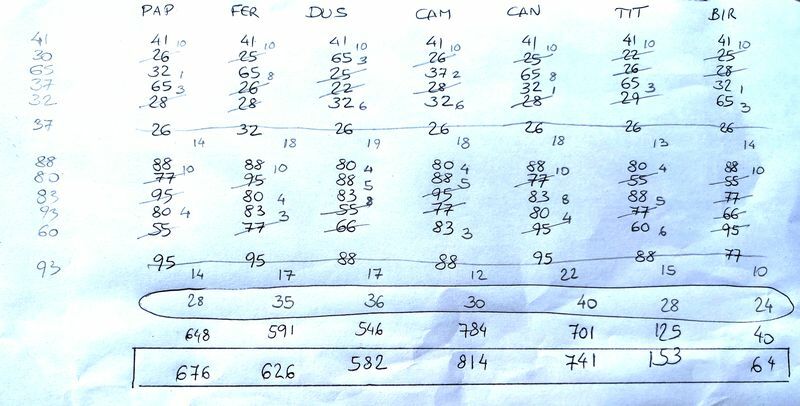 PAP FER DUS CAM CAN TIT BIR
41 41 10 41 10 41 10 41 10 41 10 41 10 41 10
30 26 25 65 3 26 25 22 25
65 32 1 65 8 25 37 2 65 8 26 28
37 65 3 26 22 28 32 1 65 3 32 1
32 28 28 32 6 32 6 28 29 65 3
37 26 32 26 26 26 26 26
14 18 19 18 18 13 14
88 88 10 88 10 80 4 80 4 88 10 80 4 88 10
80 77 95 88 5 88 5 77 55 55
83 95 80 4 83 8 95 83 8 88 5 77
93 80 4 83 3 55 77 80 4 77 66
60 55 77 66 83 3 95 60 6 95
93 95 95 88 88 95 88 77
14 17 17 12 22 15 10
28 35 36 30 40 28 24
648 591 546 784 701 125 40
676 626 582 814 741 153 64